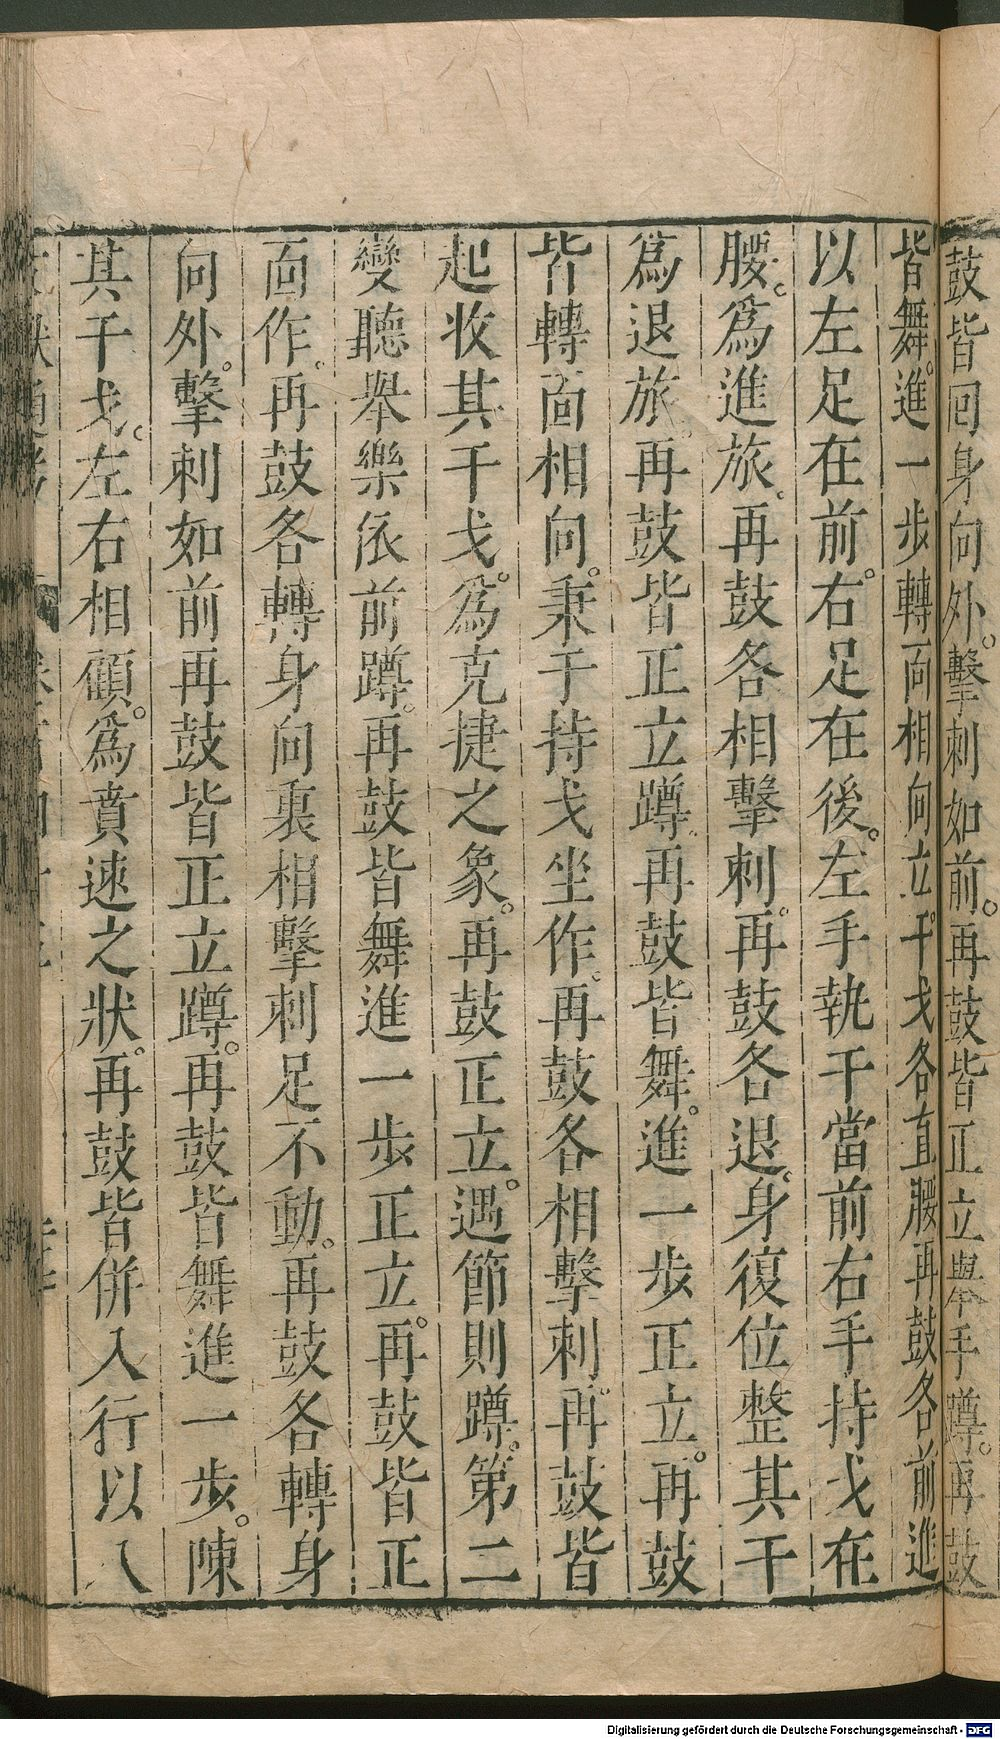 鼓皆回身向外。擊刺如前。再鼓皆正立舉手蹲。再鼓
皆舞。進一步轉面相向立。干戈各直腰再鼓各前進
以左足在前。右足在後。左手執干當前右手持戈在
腰。爲進旅。再鼓各相擊刺。再鼓各退。身復位整其干
爲退旅。再鼓皆正立蹲。再鼓皆舞。進一步正立。再鼓
皆轉面相向。秉干持戈坐作。再鼓各相擊刺。再鼓皆
起收其干戈。爲克捷之象。再鼓正立。遇節則蹲。第二
變聽舉樂依前蹲。再鼓皆舞進一步正立。再鼓皆正
面作。再鼓各轉身向裏相擊刺足不動。再鼓各轉身
向外。擊刺如前再鼓皆正立蹲。再鼓皆舞進一步。陳
其干戈。左右相顧。爲賁速之狀。再鼓皆併入行以八
Digitalisierung gefördert durch die Deutsche Forschungsgemeinschaft - DFG